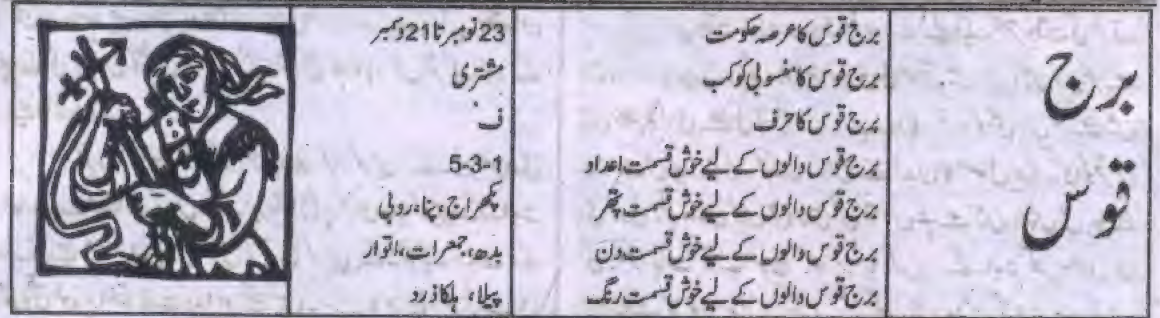 برج
قوس
برج قوس کا عرصہ حکومت 23 نومبر تا 21 دسمبر
برج قوس کا منسوبی کوکب مشتری
برج قوس کا حرف ف
برج قوس والوں کے لیے خوش قسمت اعداد 5-3-1
برج قوس والوں کے لیے خوش قسمت پتھر پکھراج، پنا، روبی
برج قوس والوں کے لیے خوش قسمت دن بدھ، جمعرات، اتوار
برج قوس والوں کے لیے خوش قسمت رنگ پیلا، ہلکا زرد